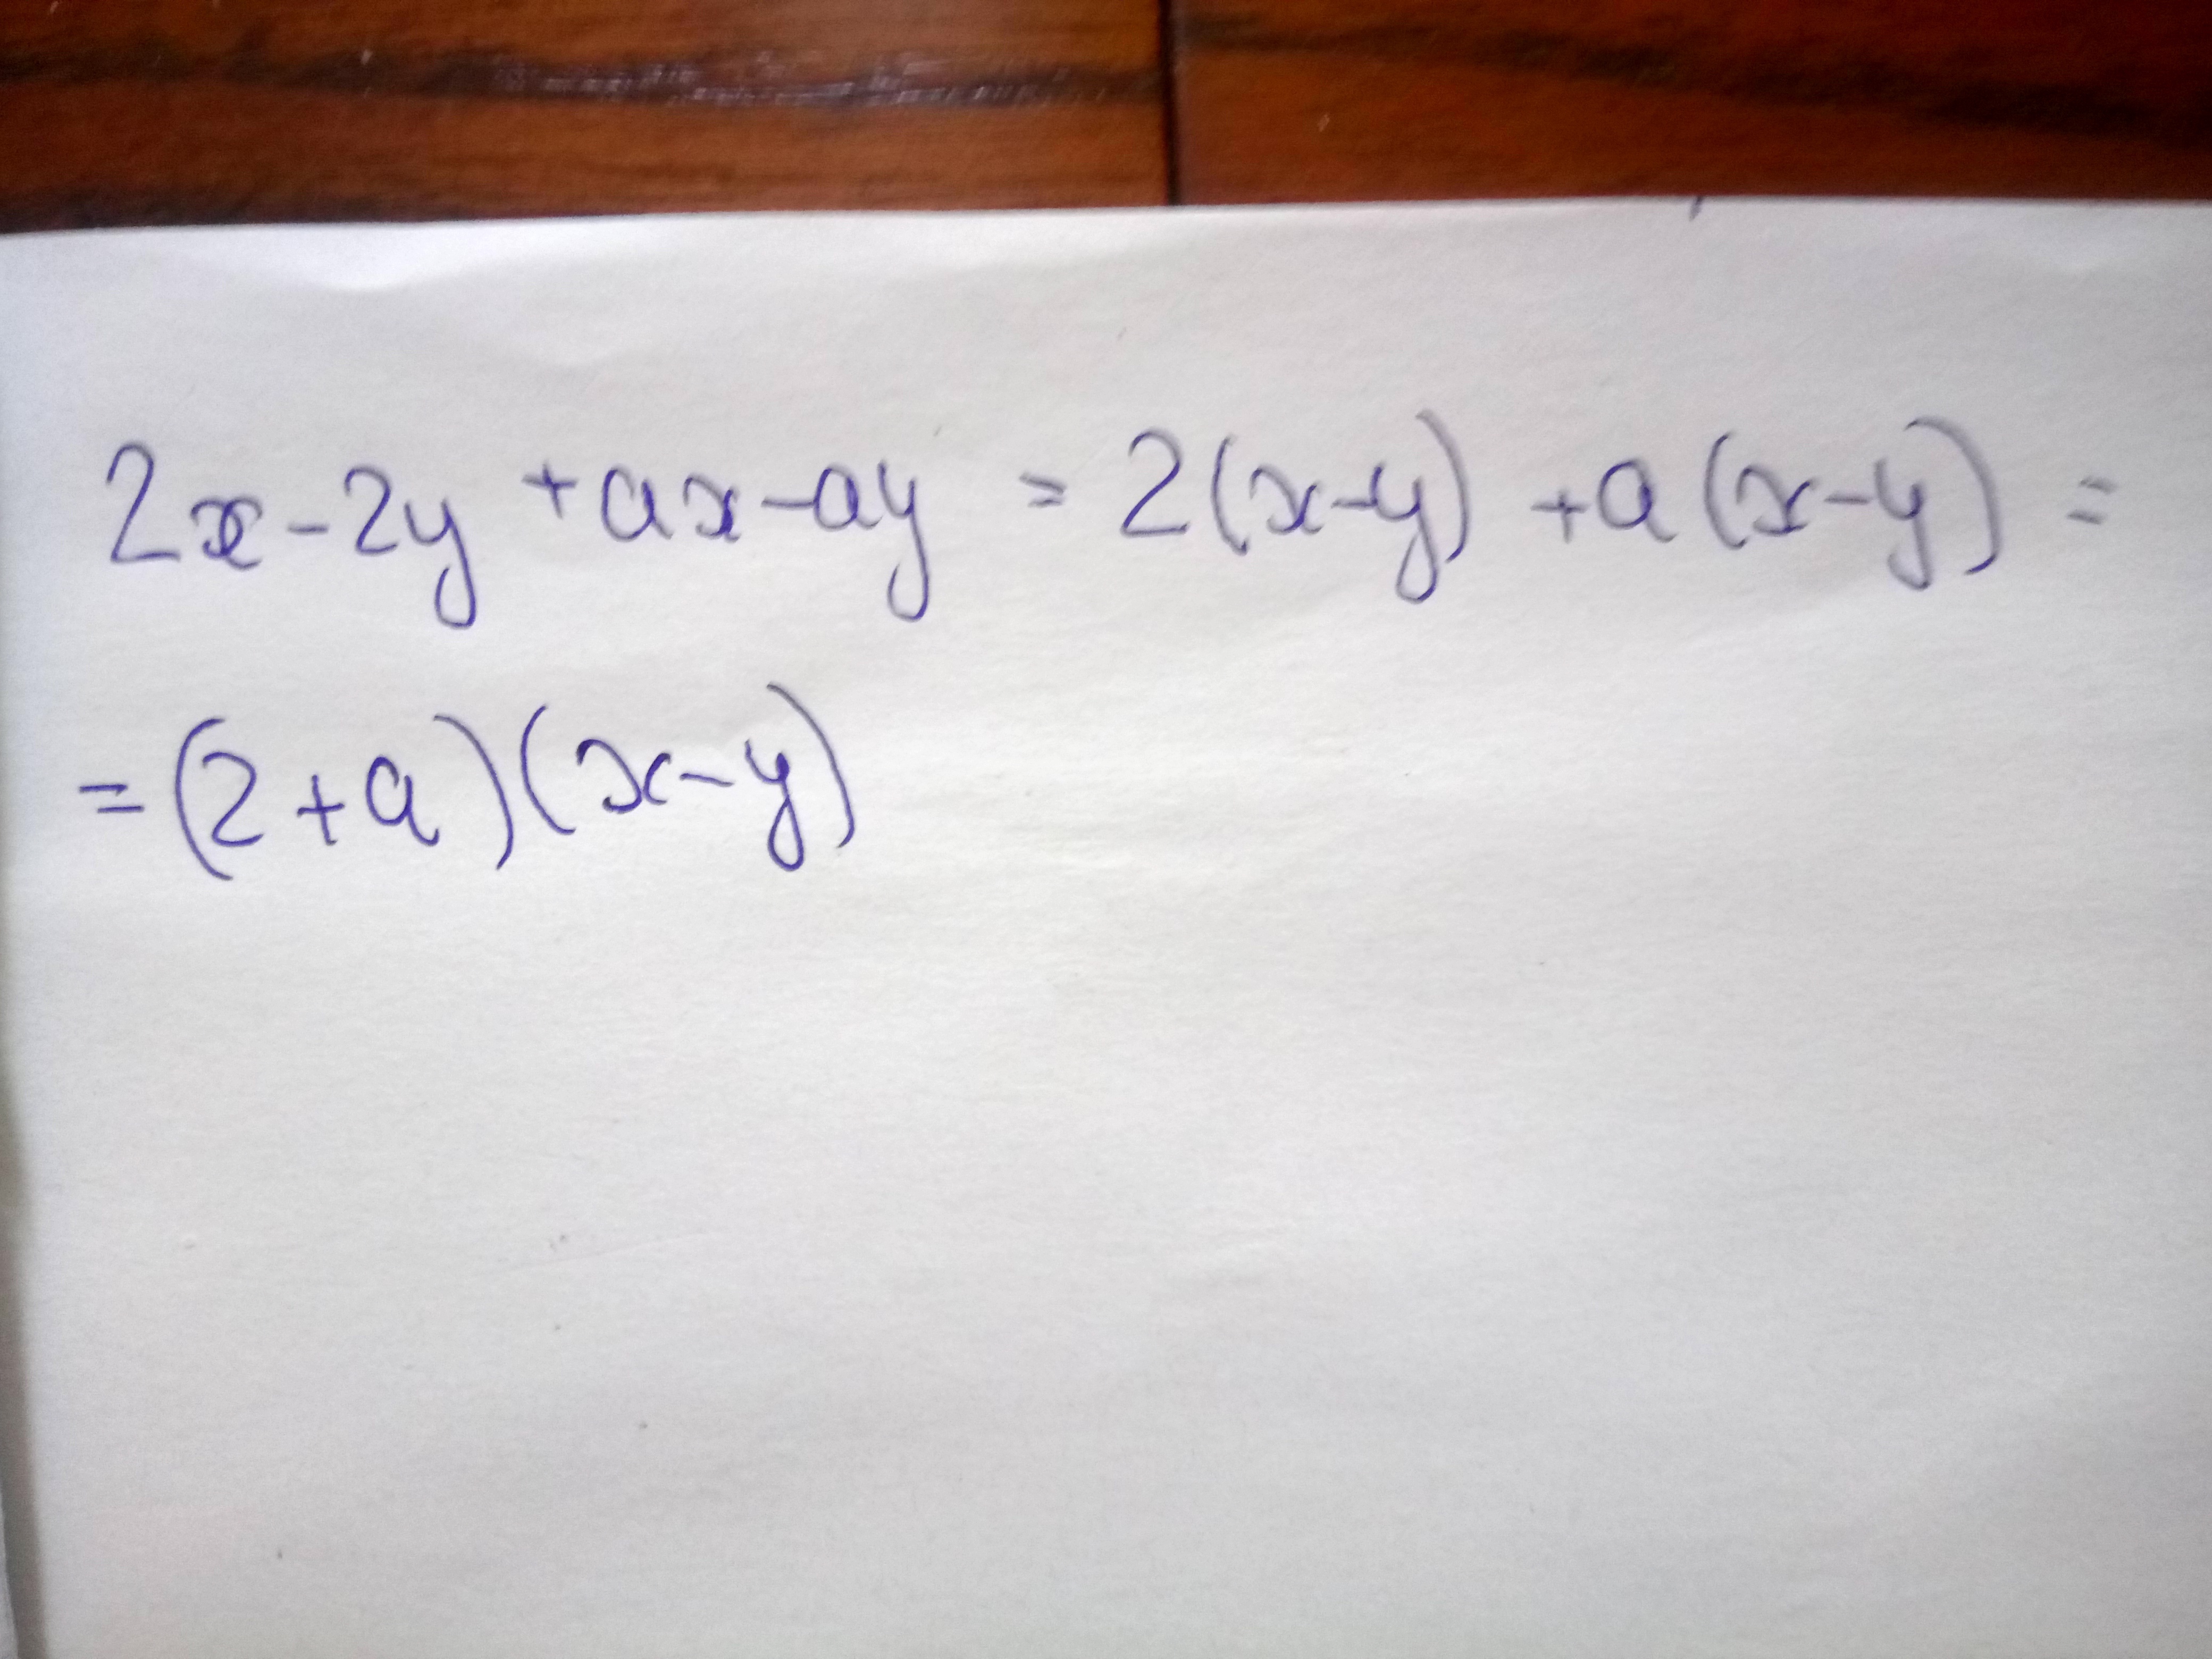 2x-2y+ax-ay = 2(x-y)+a(x-y) =
= (2+a)(x-y)